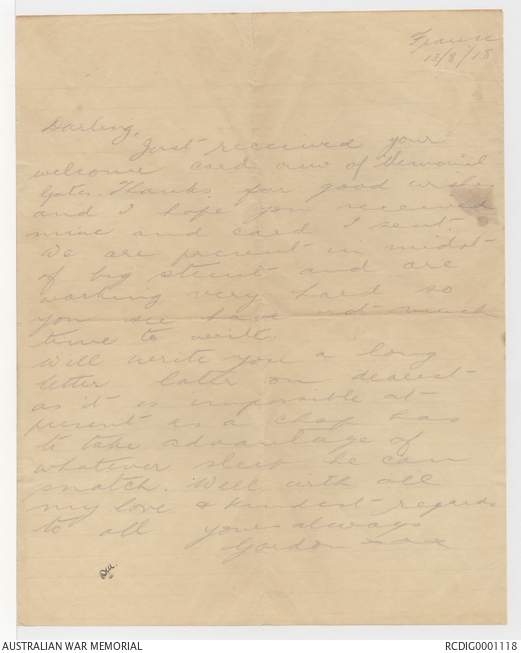 France
13/8/18
Darling,
Just received your
welcome card view of Memorial
Gates. Thanks for good wishes
and I hope you received
mine and card I sent.
We are present in midst
of big stunt and are
working very hard so
you see have not much
time to write
Will write you a long
letter later on dearest
as it is impossible at
present as a chap has
to take advantage of
whatever sleep he can
snatch. Well with all
my love & kindest regards
to all yours always
Gordon xxx
AUSTRALIAN WAR MEMORIAL
RCDIG0001118